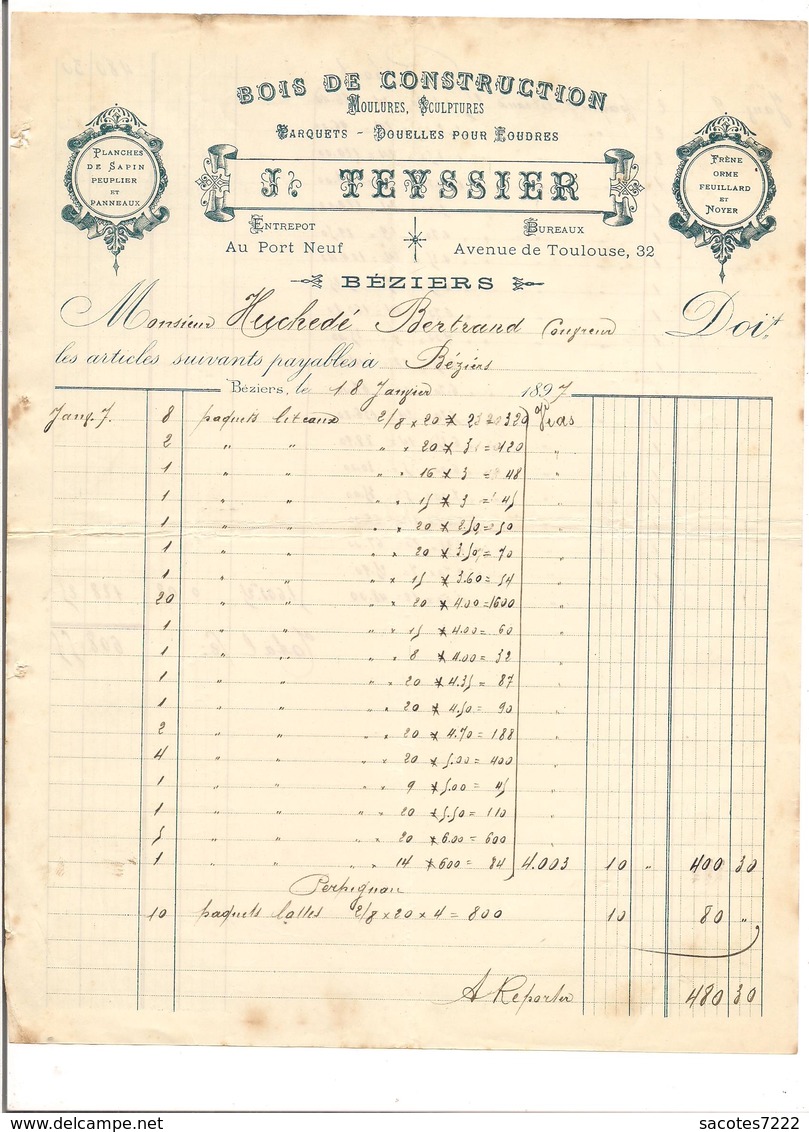 BOIS DE CONSTRUCTION
MOULURES, SCULPTURES
PARQUETS - DOUELLES POUR FOUDRES
PLANCHES
DE SAPIN
PEUPLIER
ET
PANNEAUX
J. TEYSSIER
FRÊNE
ORME
FEUILLARD
ET
NOYER
ENTREPOT
Au Port Neuf
BUREAUX
Avenue de Toulouse, 32
BÉZIERS
Monsieur Huchedé Bertrand Doit
les articles suivants payables à Béziers
Béziers, le 18 Janvier 1897
Janv. 7. 8 paquets liteaux 2/8 × 20 × 2 = 320
2 " " " × 20 × 3 = 120 "
1 " " " × 16 × 3 = 48 "
1 " " " × 15 × 3 = 45 "
1 " " " × 20 × 2.50 = 50 "
1 " " " × 20 × 3.50 = 70 "
1 " " " × 15 × 3.60 = 54 "
20 " " " × 20 × 4.00 = 1600 "
1 " " " × 15 × 4.00 = 60 "
1 " " " × 8 × 4.00 = 32 "
1 " " " × 20 × 4.35 = 87 "
1 " " " × 20 × 4.50 = 90 "
2 " " " × 20 × 4.70 = 188 "
4 " " " × 20 × 5.00 = 400 "
1 " " " × 9 × 5.00 = 45 "
1 " " " × 20 × 5.50 = 110 "
5 " " " × 20 × 6.00 = 600 "
1 " " " × 14 × 600 = 84 4.003 10 " 400 30
Perpignan
10 paquets lattes 2/8 × 20 × 4 = 800 10 80 "
A Reporter 480 30
www.delcampe.net
sacotes7222